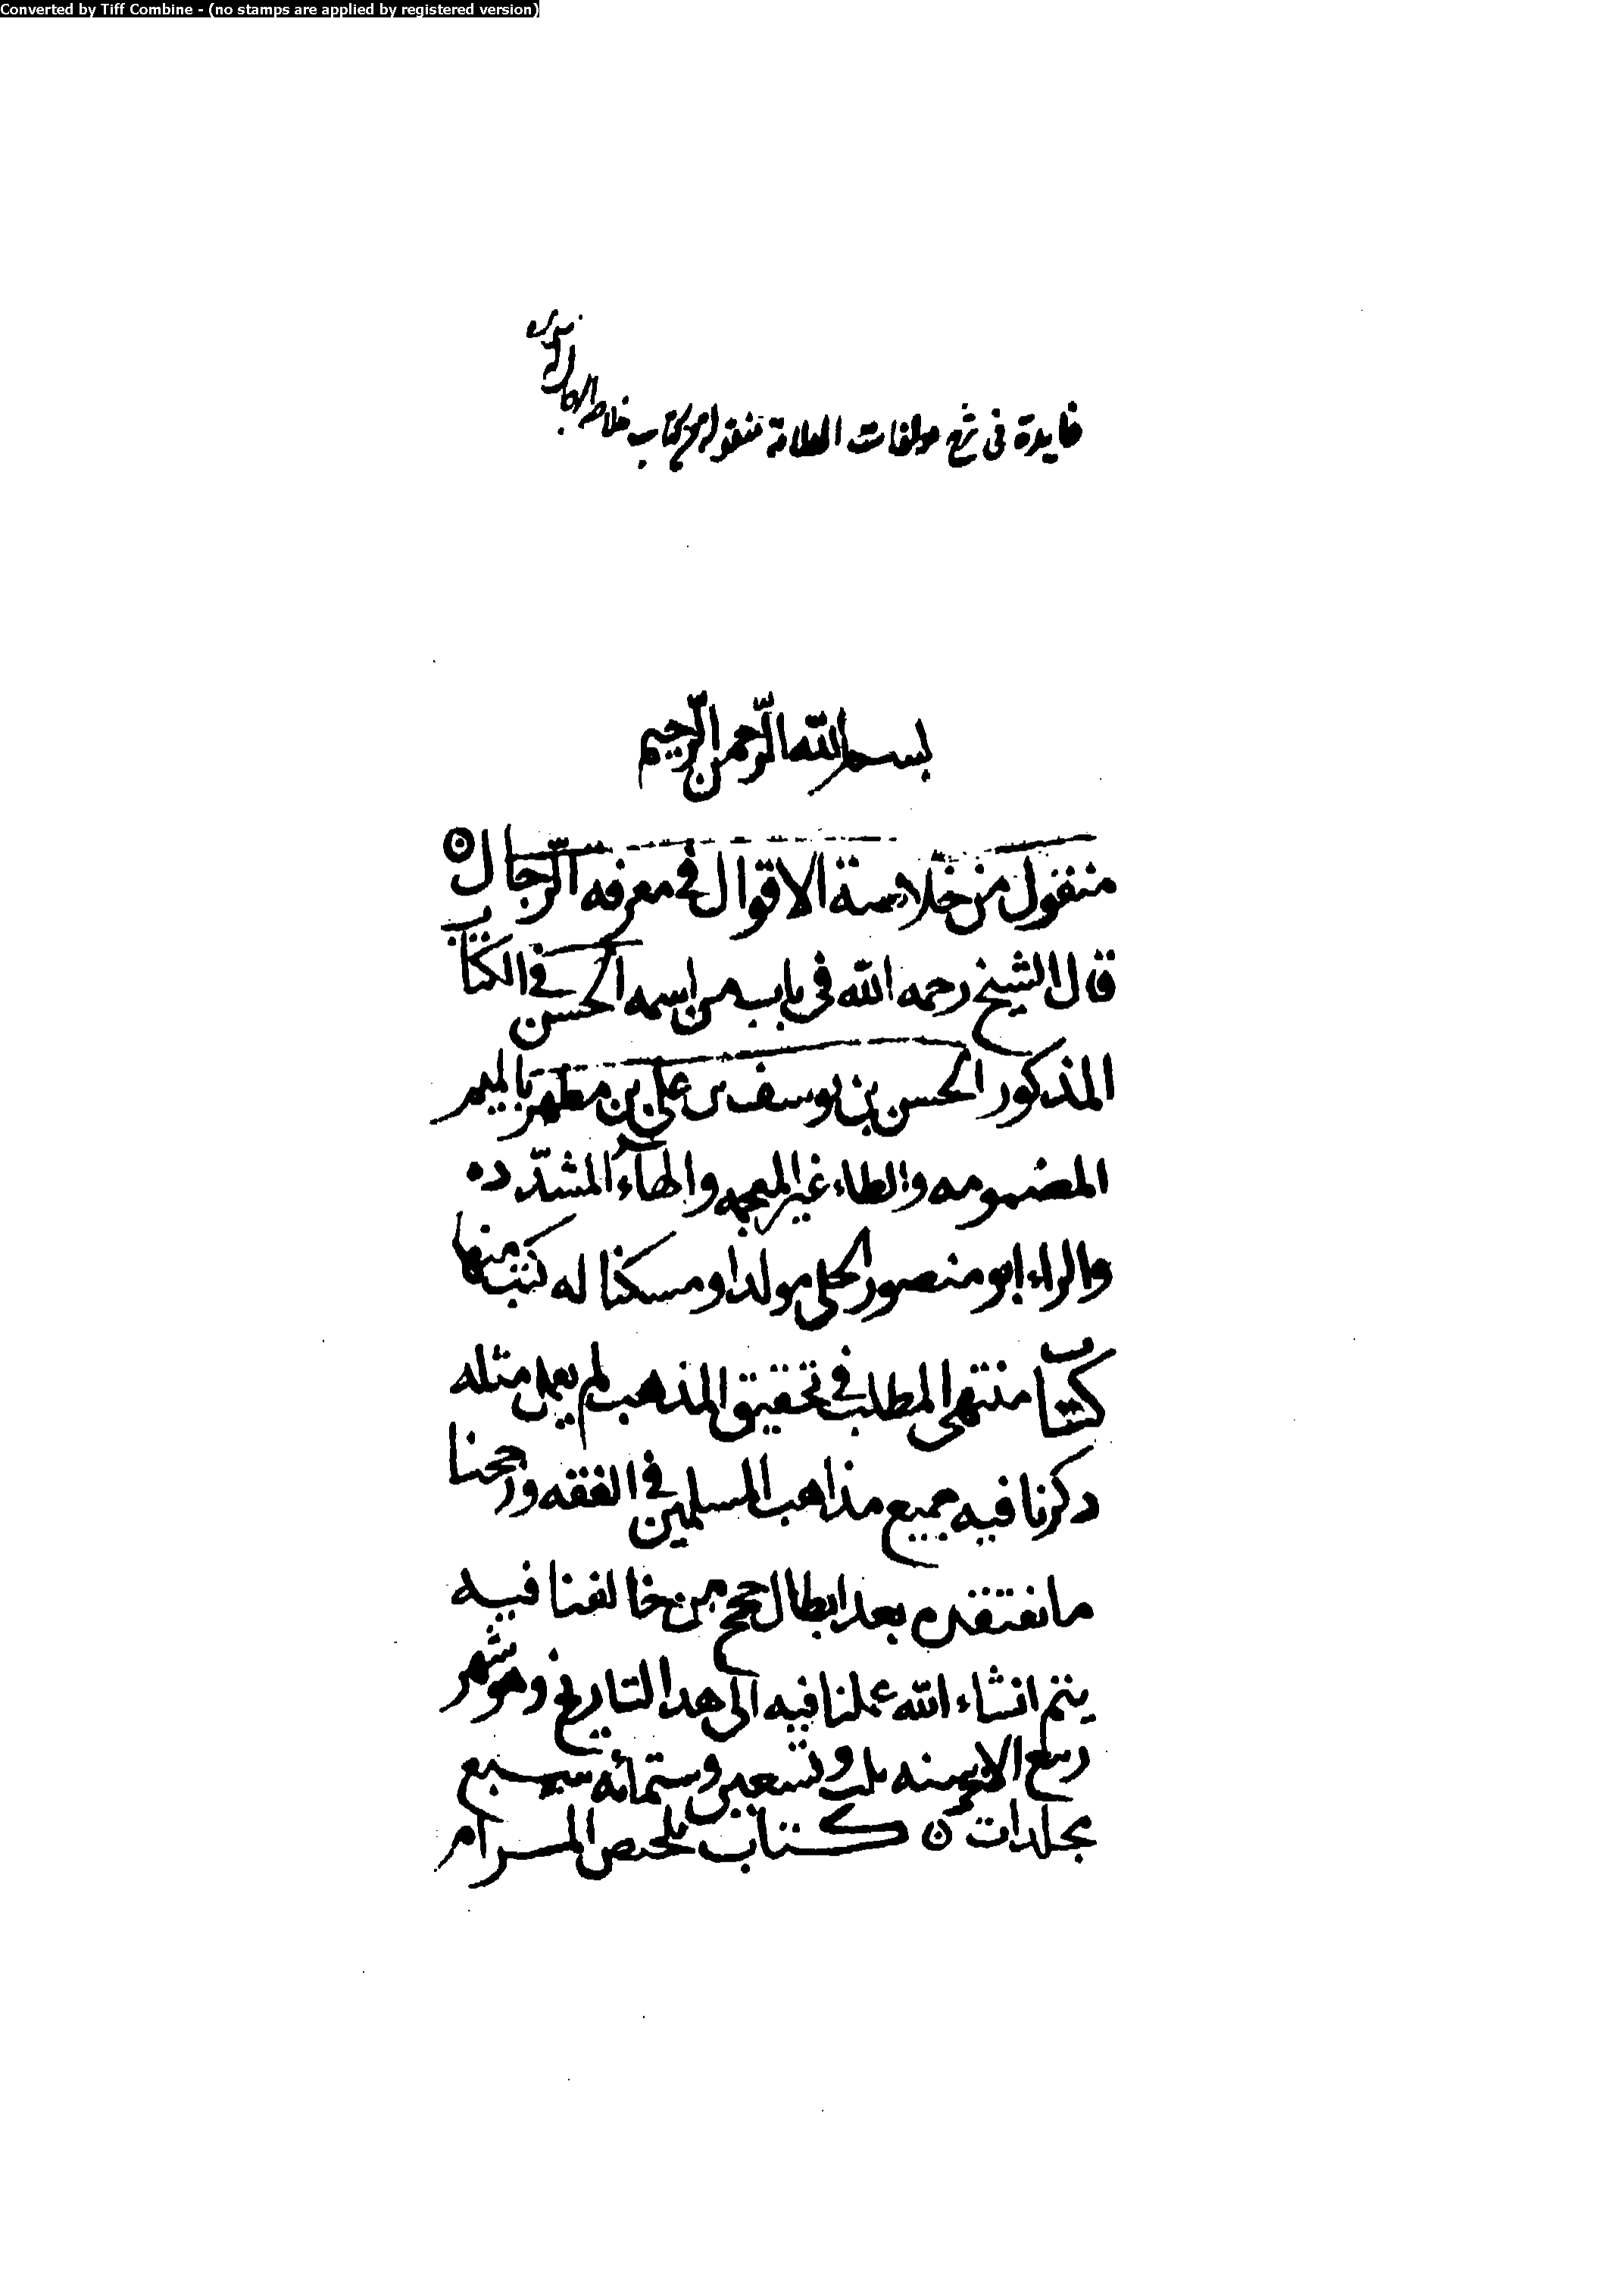 Converted by Tiff Combine - (no stamps are applied by registered version)
فايدة فى شرح مولفات العلامة منقول من كتاب خلاصة
بسم الله الرحمن الرحيم
منقول من خلاصة الاقوال في معرفه الرجال
قال الشيخ رحمه الله فى باب من اسمه الحسن في الكتاب
المذكور الحسن بن يوسف بن علي بن مطهر بالميم
المضمومه والطاء غير المعجمه والهاء المشدده
والراء ابو منصور الحلي مولدا ومسكنا له كتب منها
كتاب منتهى المطلب في تحقيق المذهب لم يعمل مثله
دكرنا فيه جميع مذاهب المسلمين في الفقه ورجحنا
ما نعتقده بعد ابطال حجج من خالفنا فيه
يتم انشاء الله عملنا فيه الى هدا التاريخ وهو شهر
ربيع الاخر سنه ثلث وتسعين وستمائه سبع
مجلدات ن كتاب تلخيص المرام